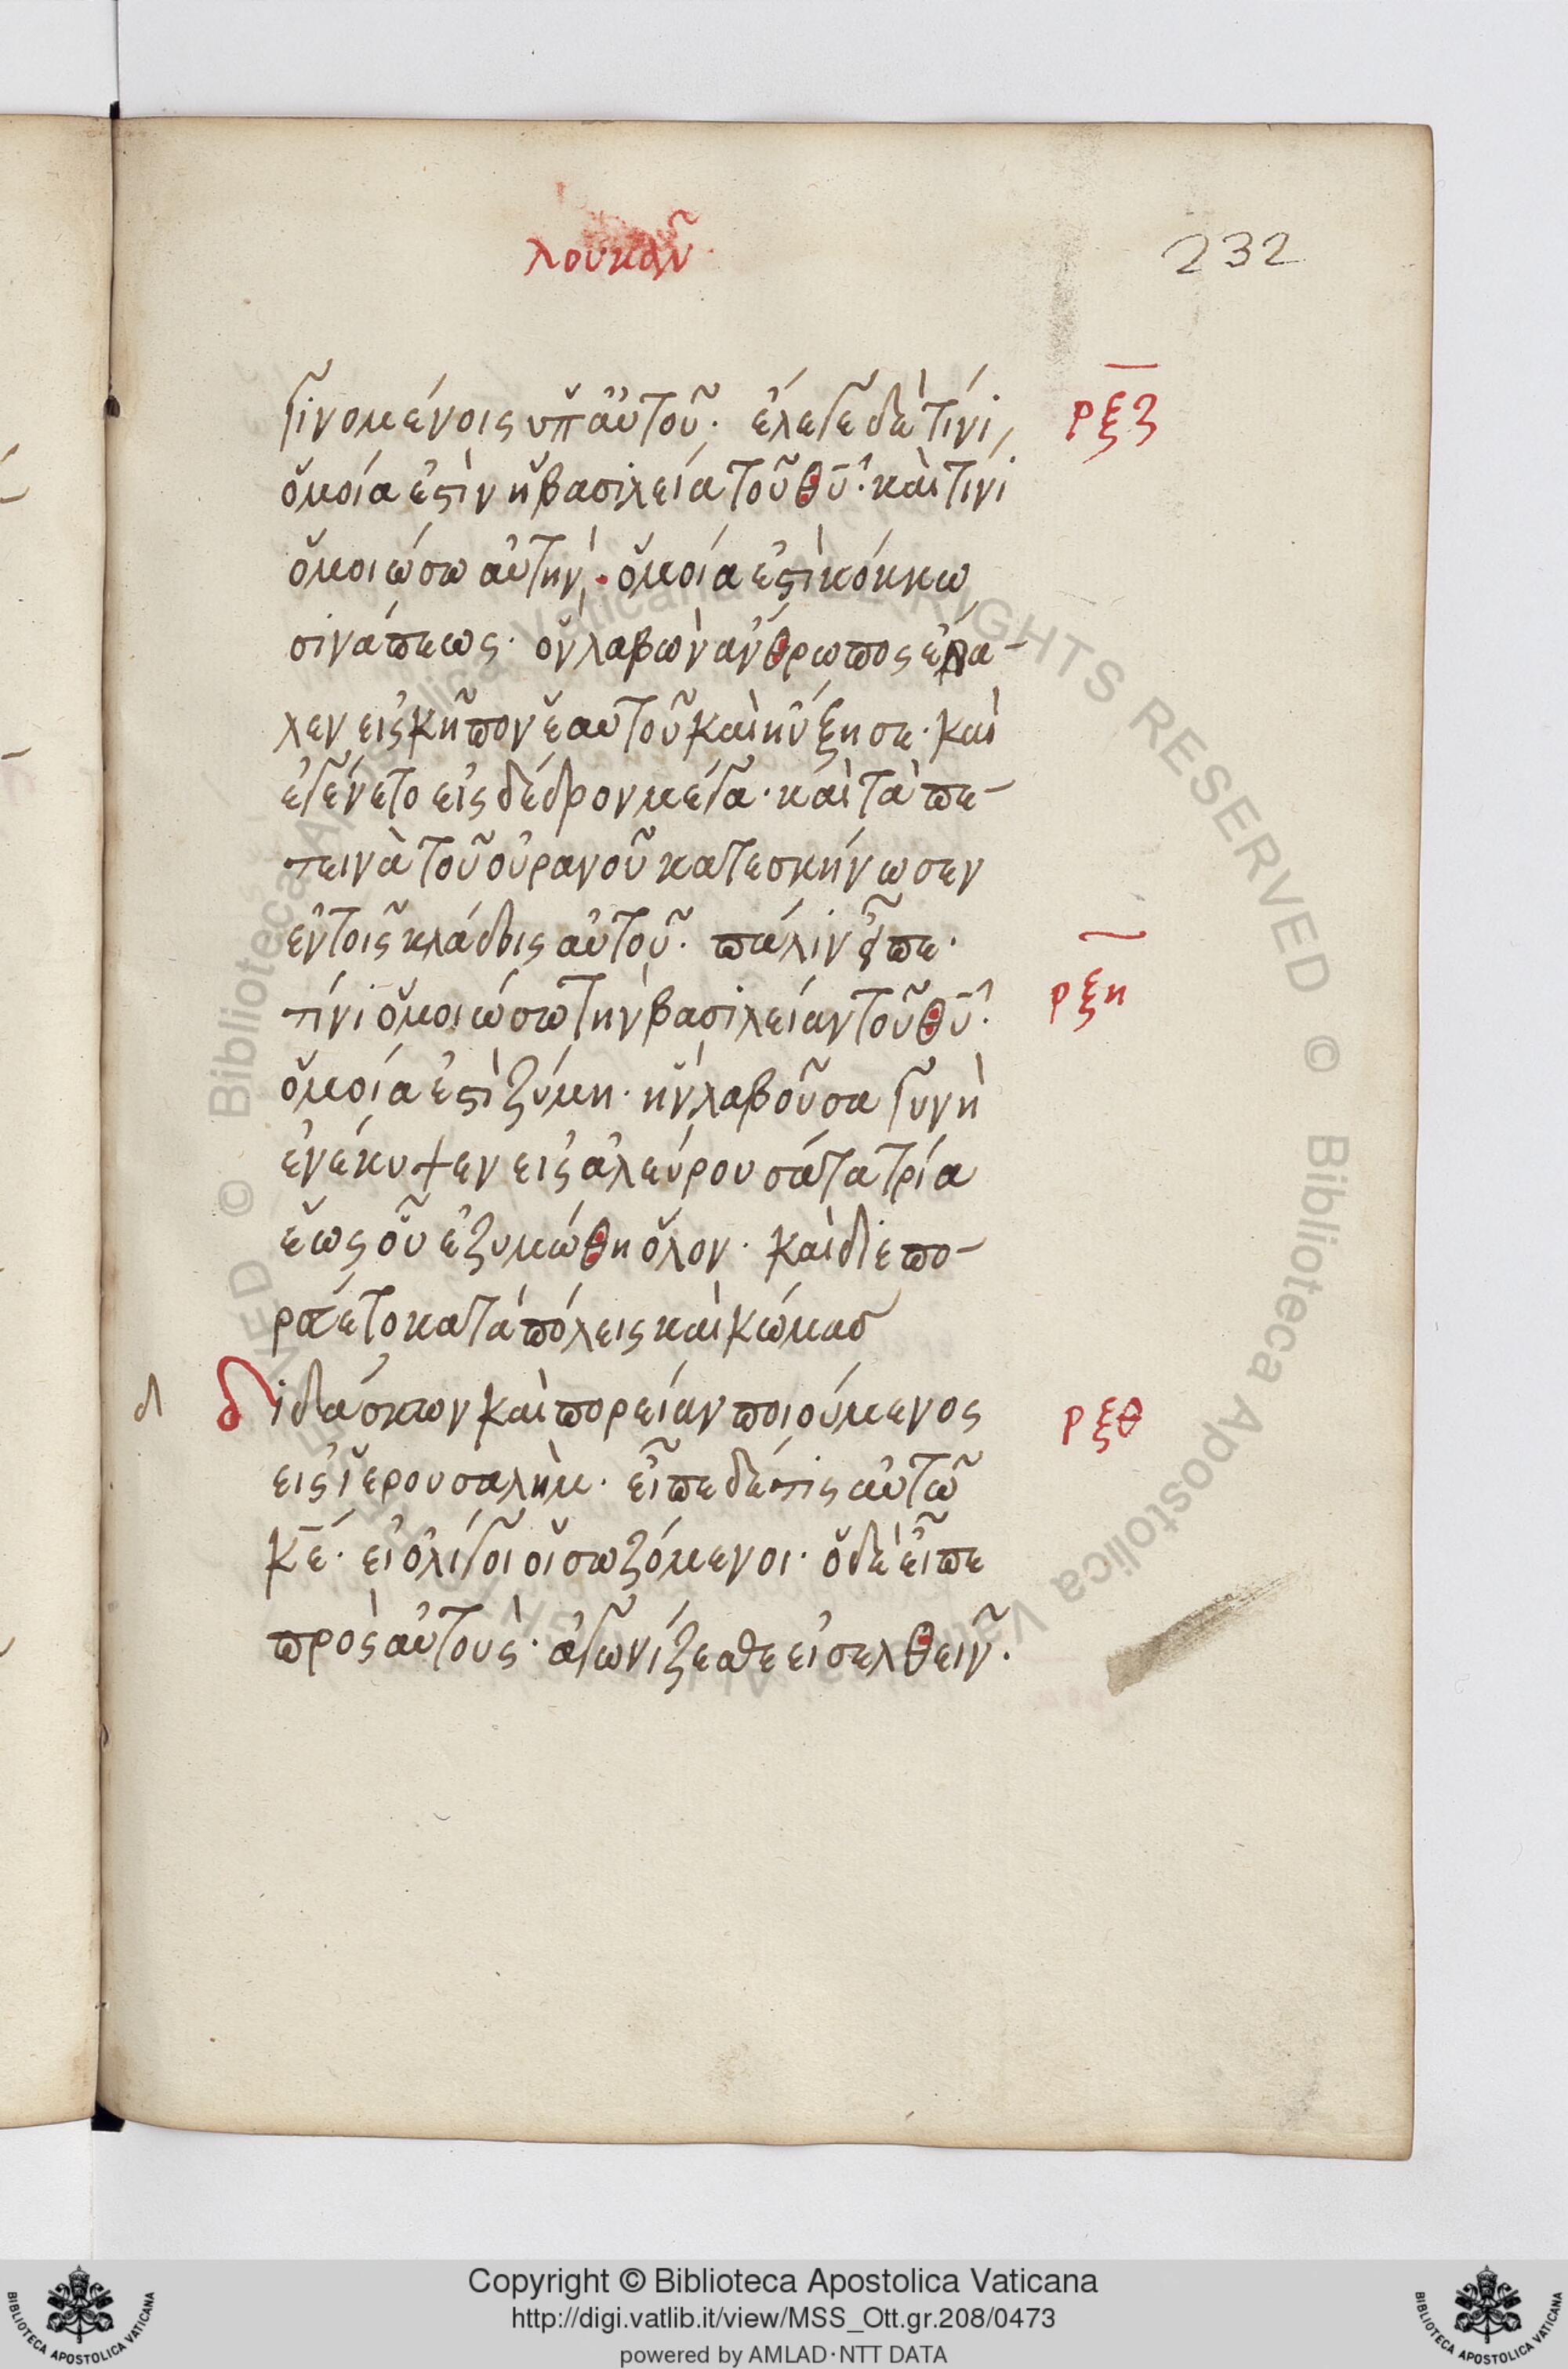 λουκᾶν
232
γινομένοις ὑπ' αὐτοῦ· ἔλεγε δὲ τίνι
ρξζ
ὁμοία ἐστὶν ἡ βασιλεία τοῦ θυ· καὶ τίνι
ὁμοιώσω αὐτήν· ὁμοία ἐστὶ κόκκω
σινάπεως· ὃν λαβὼν ἄνθρωπος ἔβα-
λεν εἰς κῆπον ἑαυτοῦ καὶ ηὔξησε· καὶ
ἐγένετο εἰς δέδρον μέγα· καὶ τὰ πε-
τεινὰ τοῦ οὐρανοῦ κατεσκήνωσεν
ἐν τοῖς κλάδοις αὐτοῦ· πάλιν εἶπε·
τίνι ὁμοιώσω τὴν βασιλείαν τοῦ θυ·
ρξη
ὁμοία ἐστὶ ζύμη· ἣν λαβοῦσα γυνὴ
ἐνέκυψεν εἰς ἀλεύρου σάτα τρία
ἕως οὗ ἐζυμώθη ὅλον· καὶ διεπο-
ρεύετο κατὰ πόλεις καὶ κώμας
δ διδάσκων καὶ πορείαν ποιούμενος
ρξθ
εἰς ἱερουσαλὴμ· εἶπε δέ τις αὐτῶ
κε· εἰ ὀλίγοι οἱ σωζόμενοι· ὁ δὲ εἶπε
πρὸς αὐτούς· ἀγωνίζεσθε εἰσελθεῖν·
Copyright © Biblioteca Apostolica Vaticana
http://digi.vatlib.it/view/MSS_Ott.gr.208/0473
powered by AMLAD·NTT DATA